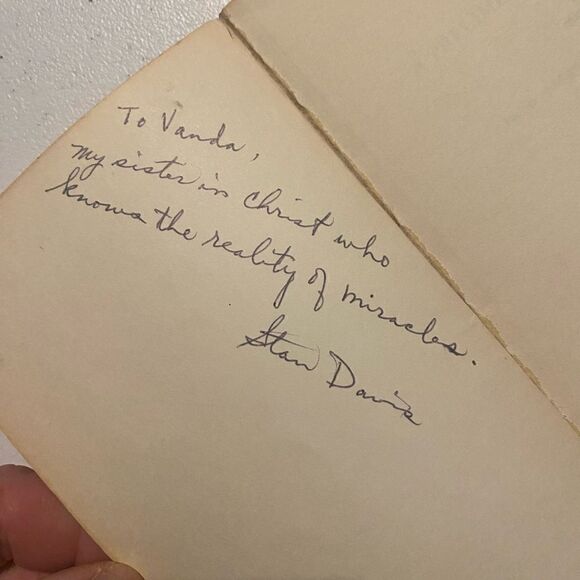 To Vanda,
my sister in Christ who
knows the reality of miracles.
Stan Davis